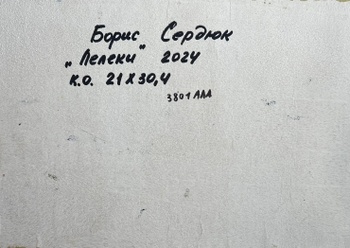 Борис Сердюк
„Лелеки" 2024
К.О. 21X30,4
3801 AAA